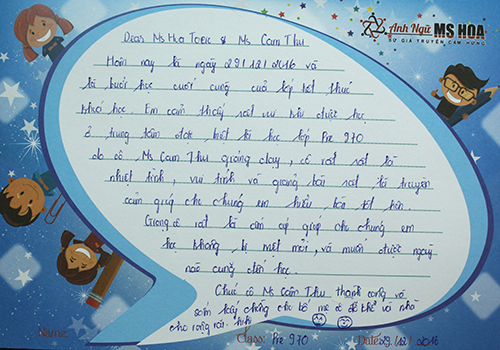 Anh Ngữ MS HOA
SỨ GIẢ TRUYỀN CẢM HỨNG
Dear Ms Hoa Toeic & Ms Cam Thu
Hôm nay là ngày 29/12/2016 và
là buổi học cuối cùng của lớp kết thúc
khoá học. Em cảm thấy rất vui khi được học
ở trung tâm đặc biệt là học lớp Pre 970
do cô Ms Cam Thu giảng dạy, cô rất rất là
nhiệt tình, vui tính và giảng bài rất là truyền
cảm giúp cho chúng em hiểu bài tốt hơn.
Giọng cô rất là giúp cho chúng em
học không bị mệt mỏi, và muốn được ngày
nào cũng đến học.
Chúc cô Ms Cẩm Thu thành công và
sớm lấy chồng cho bố mẹ cô để thể vui nhà
cho rộng rãi. hihi
Name:
Class: Pre 970
Date: 29/12/2016